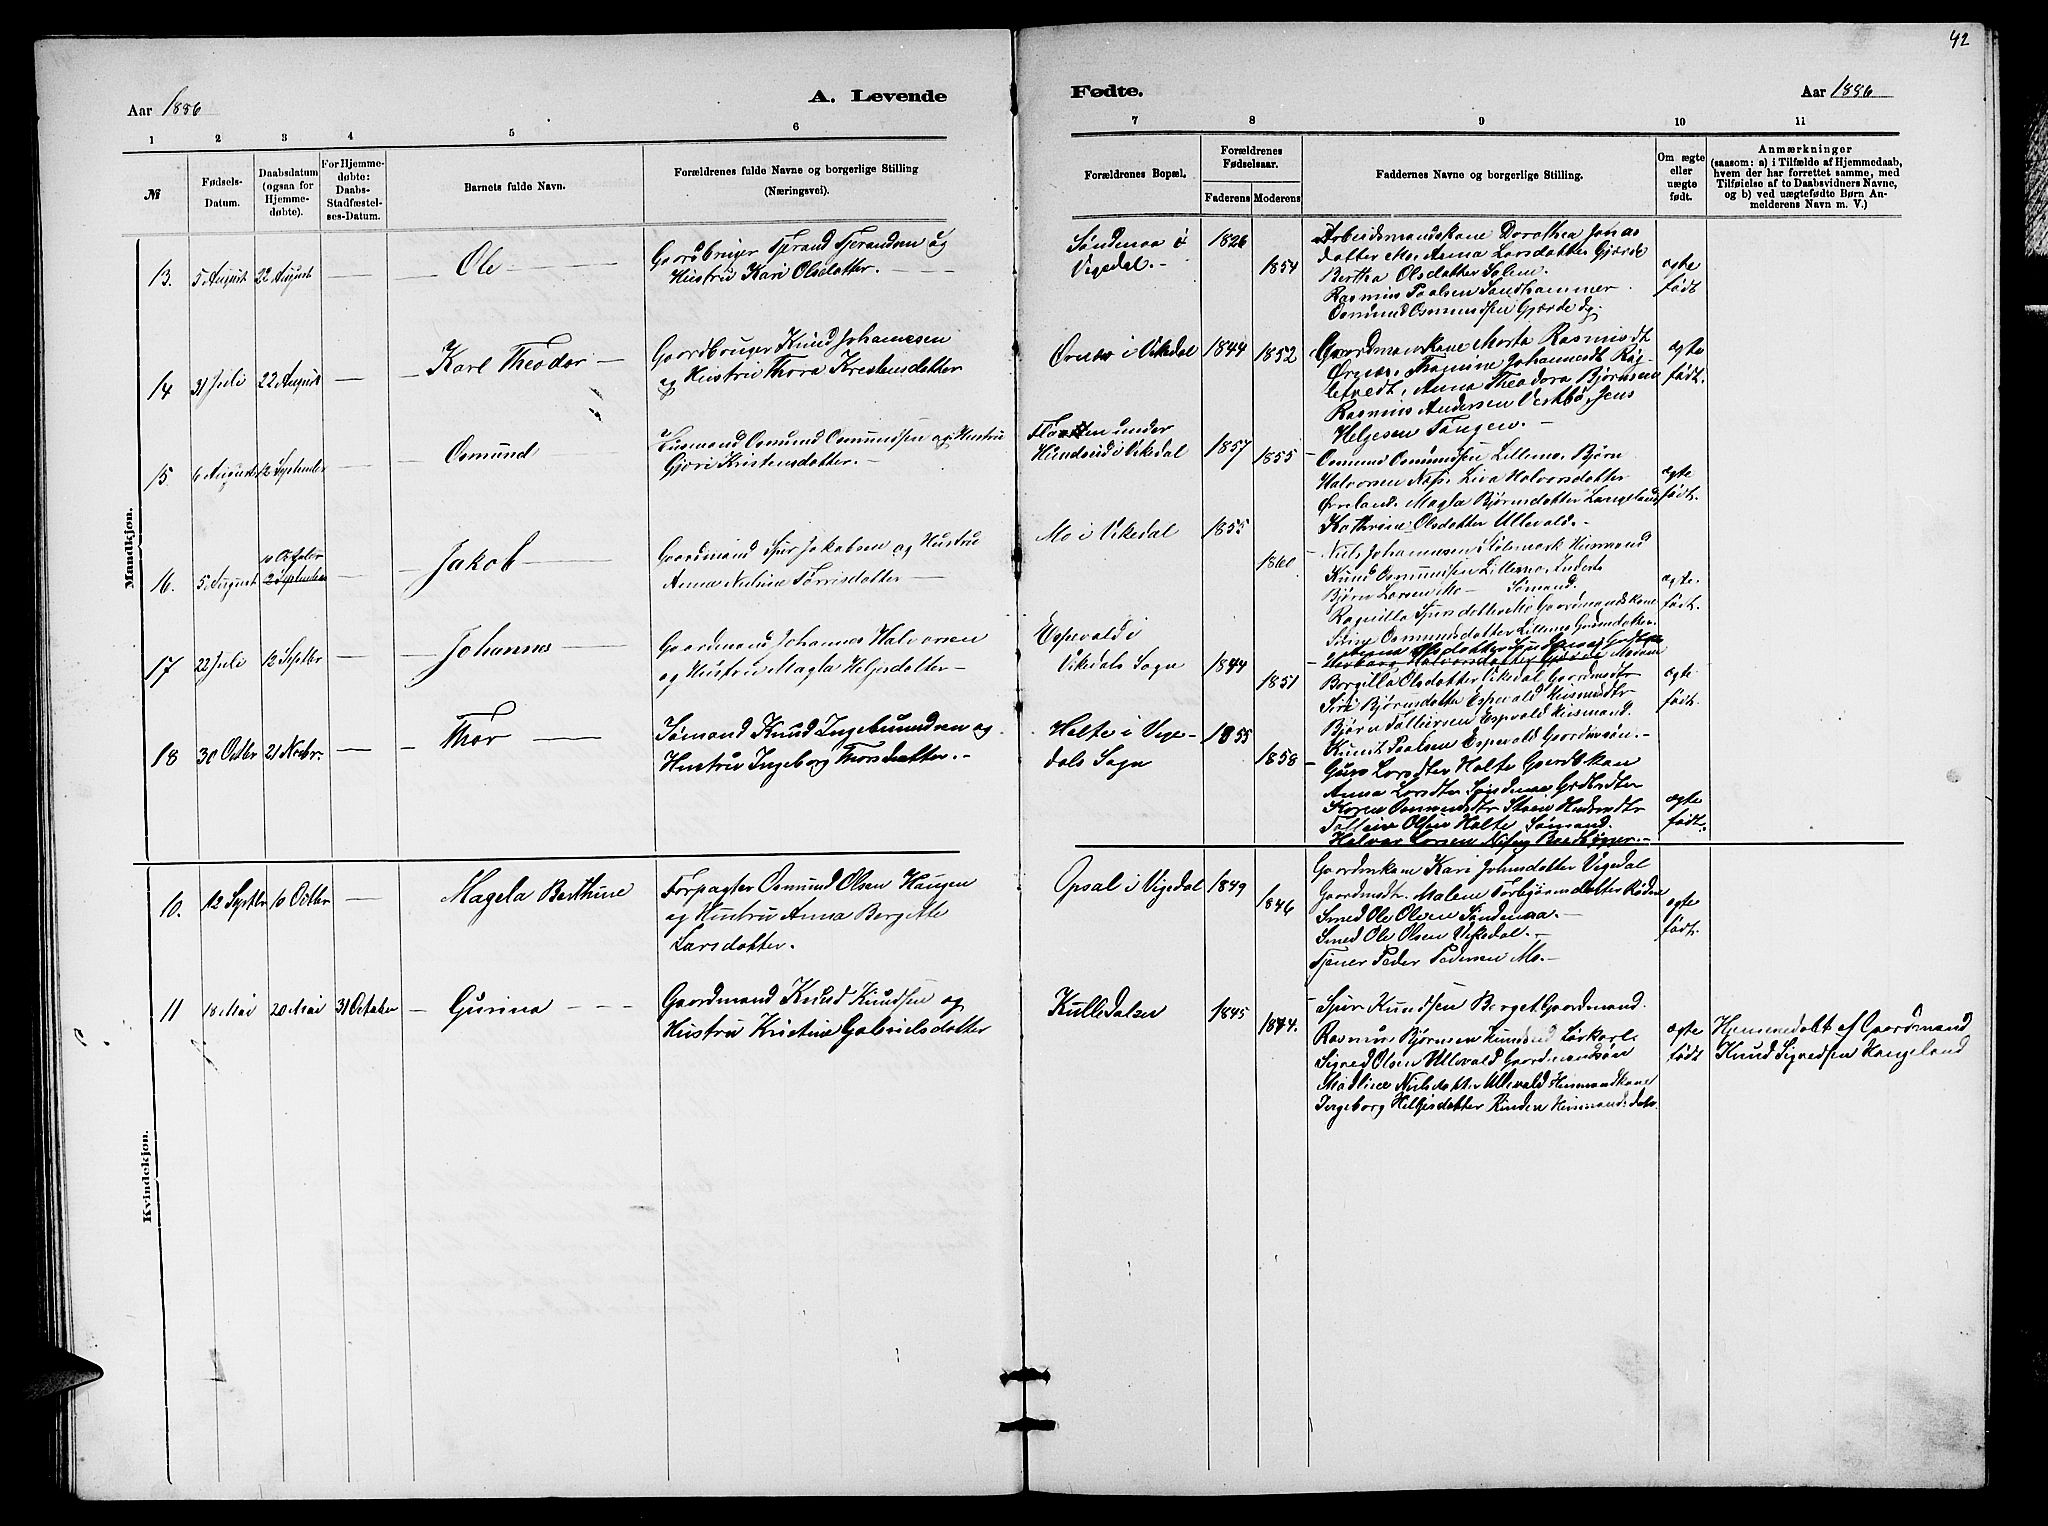 42
Aar 1886
A. Levende
Fødte.
Aar 1886
1 2 3 4 5 6 7 8 9 10 11
№
Fødsels-
Datum.
Daabsdatum
(ogsaa for
Hjemme-
døbte).
For Hjemme-
døbte:
Daabs-
Stadfæstel-
ses-Datum.
Barnets fulde Navn.
Forældrenes fulde Navne og borgerlige Stilling
(Næringsvei).
Forældrenes Bopæl.
Forældrenes
Fødselsaar.
Faderens Moderens
Faddernes Navne og borgerlige Stilling.
Om ægte
eller
uægte
født.
Anmærkninger
(saasom: a) i Tilfælde af Hjemmedaab,
hvem der har forrettet samme, med
Tilføielse af to Daabsvidners Navne,
og b) ved uægtefødte Børn An-
melderens Navn m. V.)
Mandkjøn.
13. 5 August 22 August — Ole —
Gaardbruger Tjerand Tjerandsen og
Hustru Kari Olsdatter. —
Søndenaa i
Vigedal. —
1826
1854
Arbeidsmandskone Dorothea Jonas
datter Mo, Anna Larsdatter Gjærde
Bertha Olsdatter Solem.
Rasmus Paalsen Sandhammer
Osmund Osmundsen Gjærde
ægte
født
14 31 Juli 22 August — Karl Theodor —
Gaardbruger Knud Johannesen
og Hustru Thora Kristensdatter
i Vikedal
1844
1852
Gaardmandskone Marta Rasmusdt
Johannesdt
Anna Theodora Bjørnsen
Rasmus Andersen Vestbø, Jens
Helgesen Tangen. —
ægte
født.
15. 6 August 12 September — Osmund —
Husmand Osmund Osmundsen og Hustru
Gjøri Kristensdatter. —
under
i Vikedal
1857
1855
Osmund Osmundsen Lillemo, Bjørn
Halvorsen Næs, Liva Halvorsdatter
Magla Bjørnsdatter Langeland
Kathrine Olsdatter Ullevald. —
ægte
født.
16. 5 August
10 Octobr
2 September
— Jakob —
Gaardmand Sjur Jakobsen og Hustru
Anna Nilsine Torrisdatter —
Mo i Vikedal
1855
1860
Niels Johannesen Husmand
Knud Osmundsen Lillemo,
Bjørn Larsen Mo — Sømand.
Ragnilla Sjursdatter Mo Gaardmandskone
Sirine Osmundsdatter Lillemo
ægte.
født.
17 22 Juli 12 Septbr — Johannes —
Gaardmand Johannes Halvorsen
og Hustru Magla Helgesdatter —
Espevald i
Vikedals Sogn
1844
1851
Halvorsdatter
Borgilla Olsdatter Vikedal Gaardmdtr
Siri Bjørnsdatter Espevald Husmdtr
Bjørn Espevald Husmand.
Knut Paalsen Espevald Gaardmsøn. —
ægte
født.
18 30 Octbr 21 Novbr — Thor —
Sømand Knud Ingebrundsen og
Hustru Ingeborg Thorsdatter. —
Holte i Vige-
dals Sogn
1855
1858
Guro Larsdtter Holte Gaardskon
Anna Larsdtter Søndenaa
Karen Osmundsdtr
Olsen Holte Sømand.
Halvor Larsen
ægte
født.
Kvindekjøn.
10. 12 Septbr 10 Octbr — Magela Berthine
Forpagter Osmund Olsen Haugen
og Hustru Anna Bergitte
Larsdatter.
Opsal i Vigedal
1849
1846
Gaardmkone Kari Johnsdatter Vigedal
Gaardmdtr. Malene Torbjørnsdatter
Smed Ole Olsen Søndenaa. —
Smed Ole Olsen Vikedal. —
Tjener Peder Pedersen Mo. —
ægte
født.
11 18 Mai 20 Mai 31 October — Gurina —
Gaardmand Knud Knudsen og
Hustru Kristine Gabrielsdatter
Kulledalen
1845
1844.
Sjur Knudsen Berget Gaardmand.
Rasmus Bjørnsen
Sigved Olsen Ullevald Gaardmandsøn
Nielsdatter Ullevald Husmandkone
Ingeborg Helgesdatter
ægte
født
Hjemmedøbt af Gaardmand
Knud Sigvedsen Hougeland